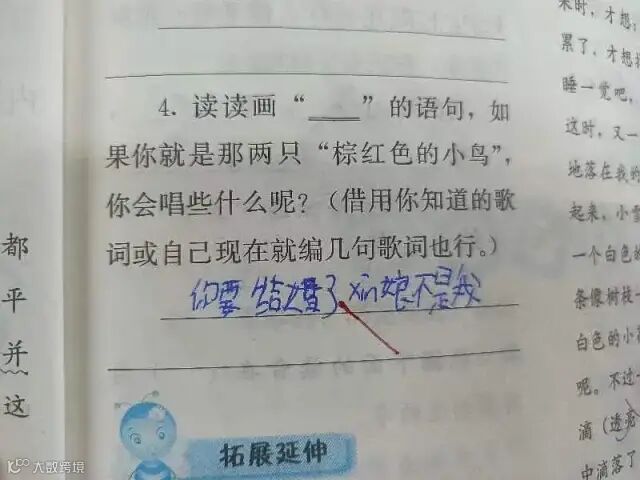 4. 读读画“____”的语句，如
果你就是那两只“棕红色的小鸟”，
你会唱些什么呢？（借用你知道的歌
词或自己现在就编几句歌词也行。）
你要结婚了 xin娘不是我
拓展延伸
都
平
并
这
来时，才想
累了，才想
睡一觉吧，
这时，又一
地落在我的
起来，小雪
一个白色的
条像树枝一
白色的小花
呢。不过一
滴（透亮
中滴落了
大数跨境